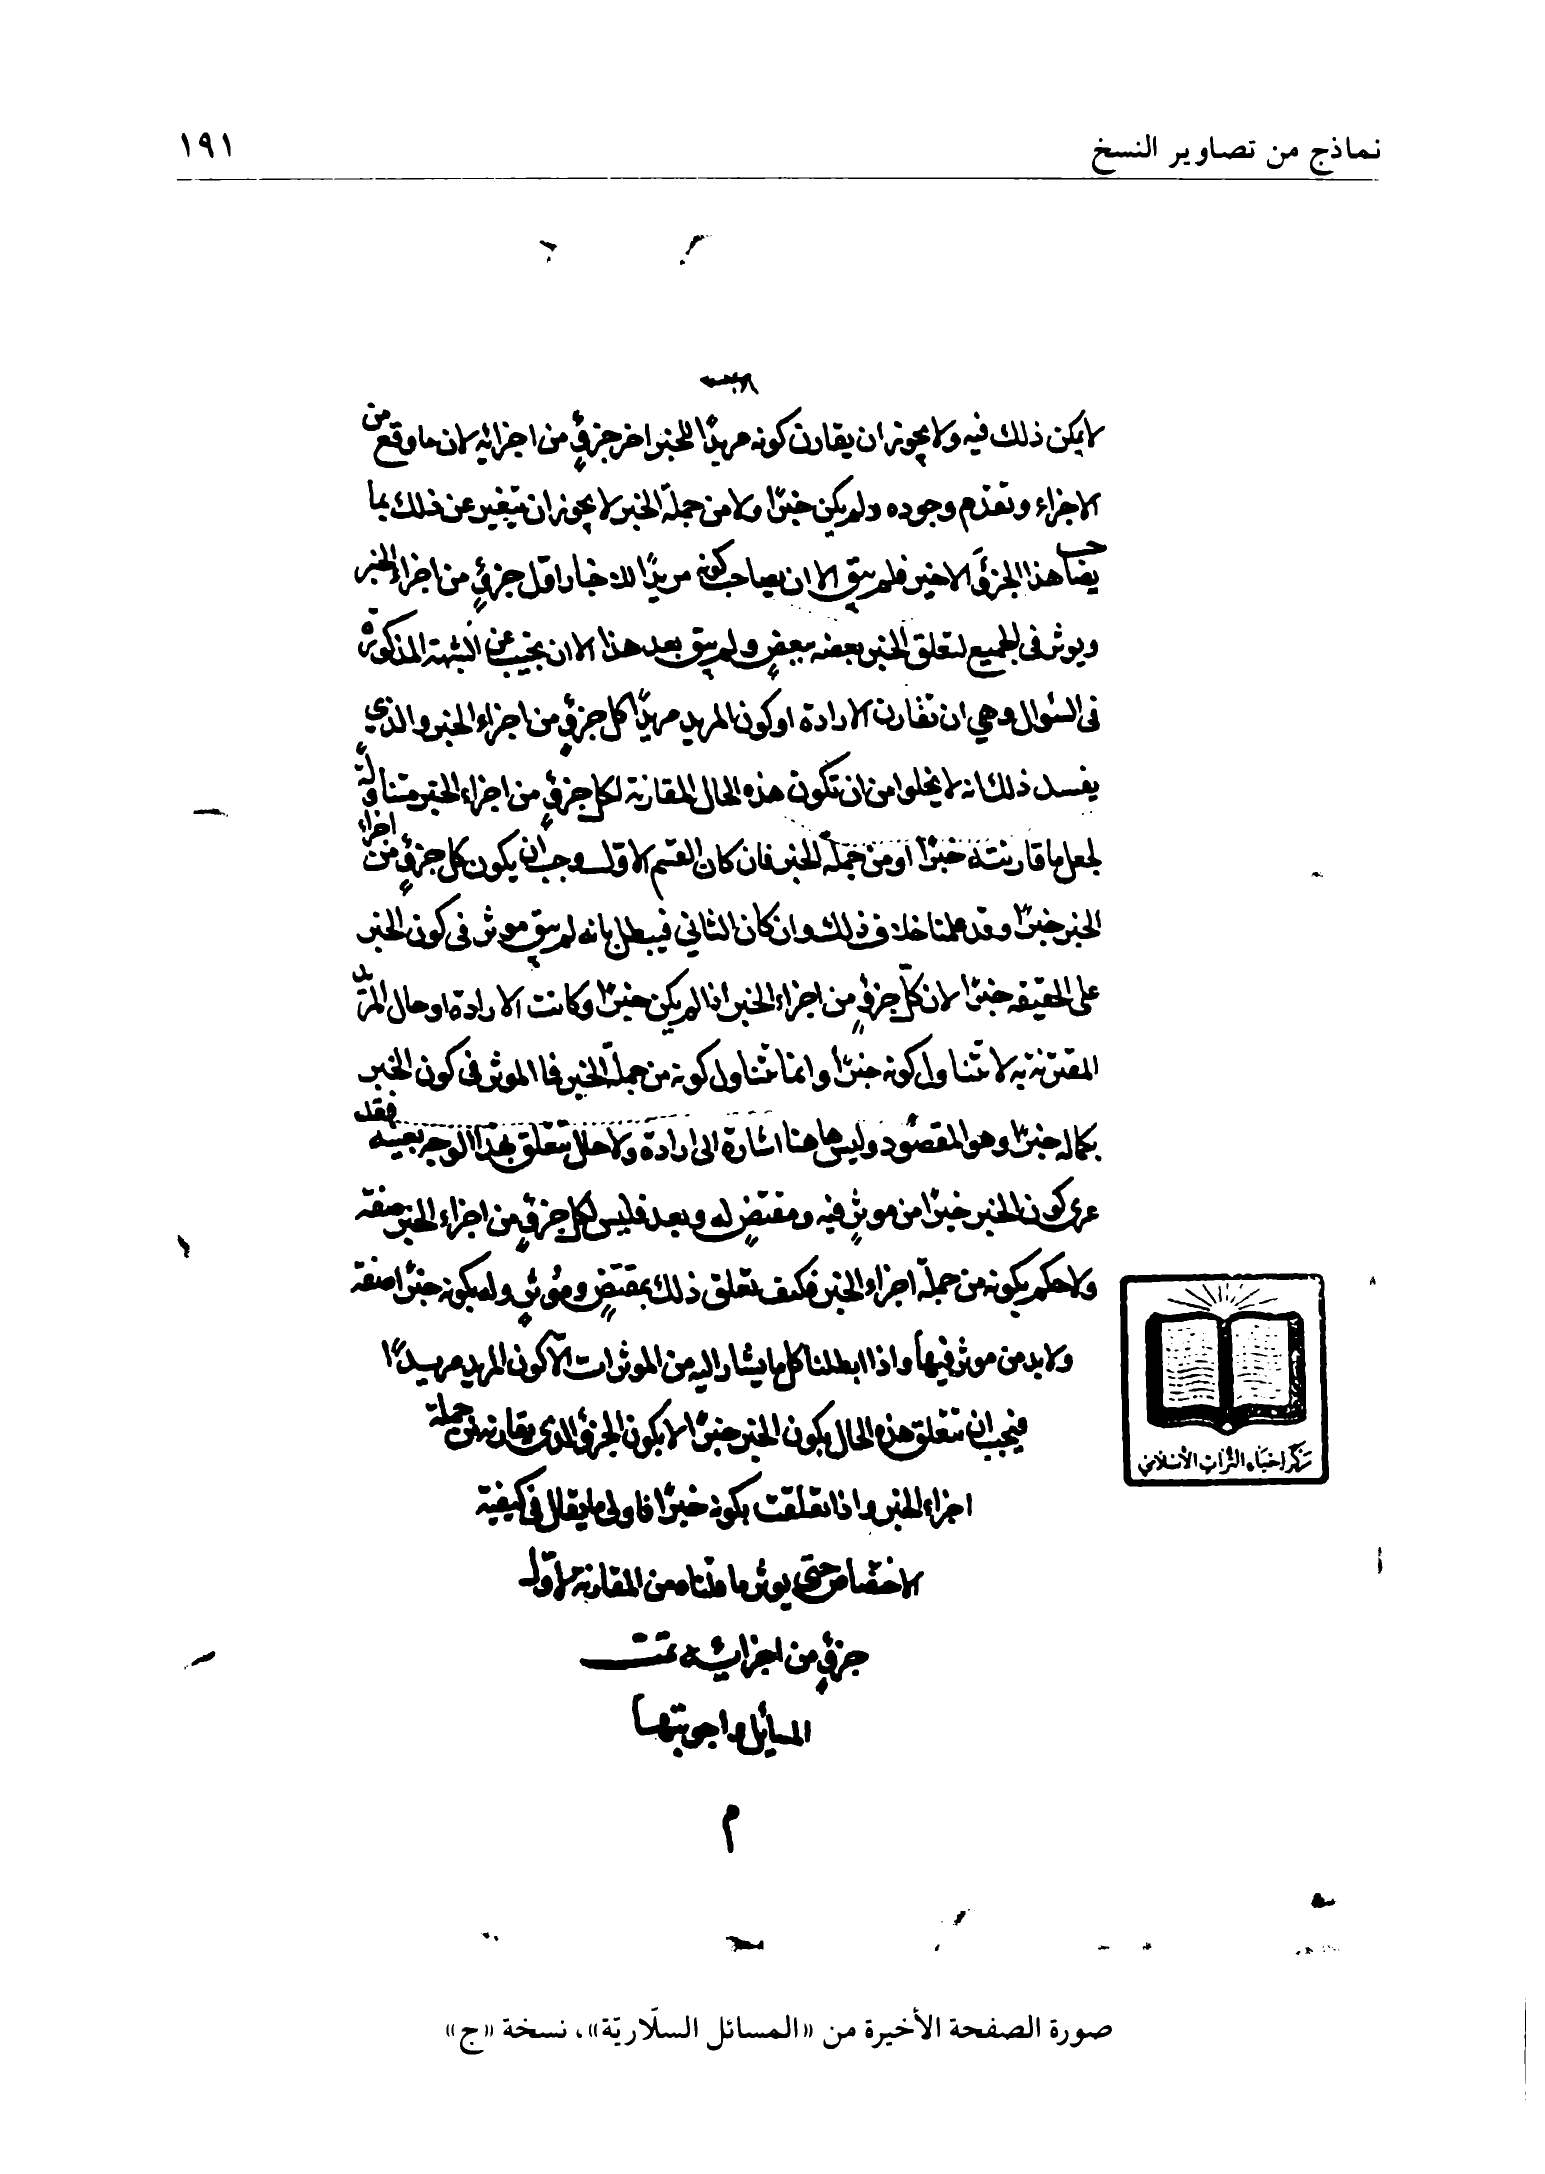 نماذج من تصاوير النسخ
١٩١
لا يمكن ذلك فيه ولا يجوز ان يقارن كونه مريدًا للخبر اخر جزئٍ من اجزائه لان ما وقع من
الاجزاء وتقدم وجوده ولم يكن خبرًا ولا من جملة الخبر لا يجوز ان يتغير عن ذلك بما
يصاحب هذا الجزئَ الاخير فلم يبق الا ان يصاحب كونه مريدًا للاخبار اول جزئٍ من اجزاء الخبر
ويوثر فى الجميع لتعلق الخبر بعضه ببعضٍ ولم يبق بعد هذا الا ان نجيب عن الشبهة المذكورة
فى السوال وهي ان تقارن الارادة او كون المريد مريدًا كل جزئٍ من اجزاء الخبر والذي
يفسد ذلك انه لا يخلوا من ان تكون هذه الحال المقارنة لكل جزئٍ من اجزاء الخبر متناولةً
لجعل ما قارنته خبرًا او من جملة الخبر فان كان القسم الاول وجب ان يكون كل جزئٍ من اجزاء
الخبر خبرًا وقد علمنا خلاف ذلك وان كان الثاني فيبطل بانه لم يبق موثر فى كون الخبر
على الحقيقه خبرًا لان كلّ جزئٍ من اجزاء الخبر اذا لم يكن خبرًا وكانت الارادة او حال المريد
المقترنة به لا تتناول كونه خبرًا وانما تتناول كونه من جملة الخبر فما الموثر فى كون الخبر
بكماله خبرًا وهو المقصود وليس هاهنا اشارة الى ارادة ولا حال تتعلق بهذا الوجه بعينه فقد
عرى كون الخبر خبرًا من موثرٍ فيه ومقتضٍ له وبعد فليس لكل جزئٍ من اجزاء الخبر صفة
ولا حكم بكونه من جملة اجزاء الخبر فكيف تعلق ذلك بمقتضٍ وموثرٍ وله بكونه خبرًا صفة
ولابد من موثر فيها واذا ابطلنا كل ما يشار اليه من الموثرات الا كون المريد مريدًا
فيجب ان تتعلق هذه الحال بكون الخبر خبرًا لا بكون الجزئ الذى يقارنه من جملة
اجزاء الخبر واذا تعلقت بكونه خبرًا فاولى ما يقال فى كيفية
الاختصاص حتى يوثر ما قلناه من المقارنة لاول
جزئٍ من اجزائه تمت
المسائل واجوبتها
م
مركز احياء التراث الاسلامي
صورة الصفحة الأخيرة من «المسائل السلّاريّة»، نسخة «ج»